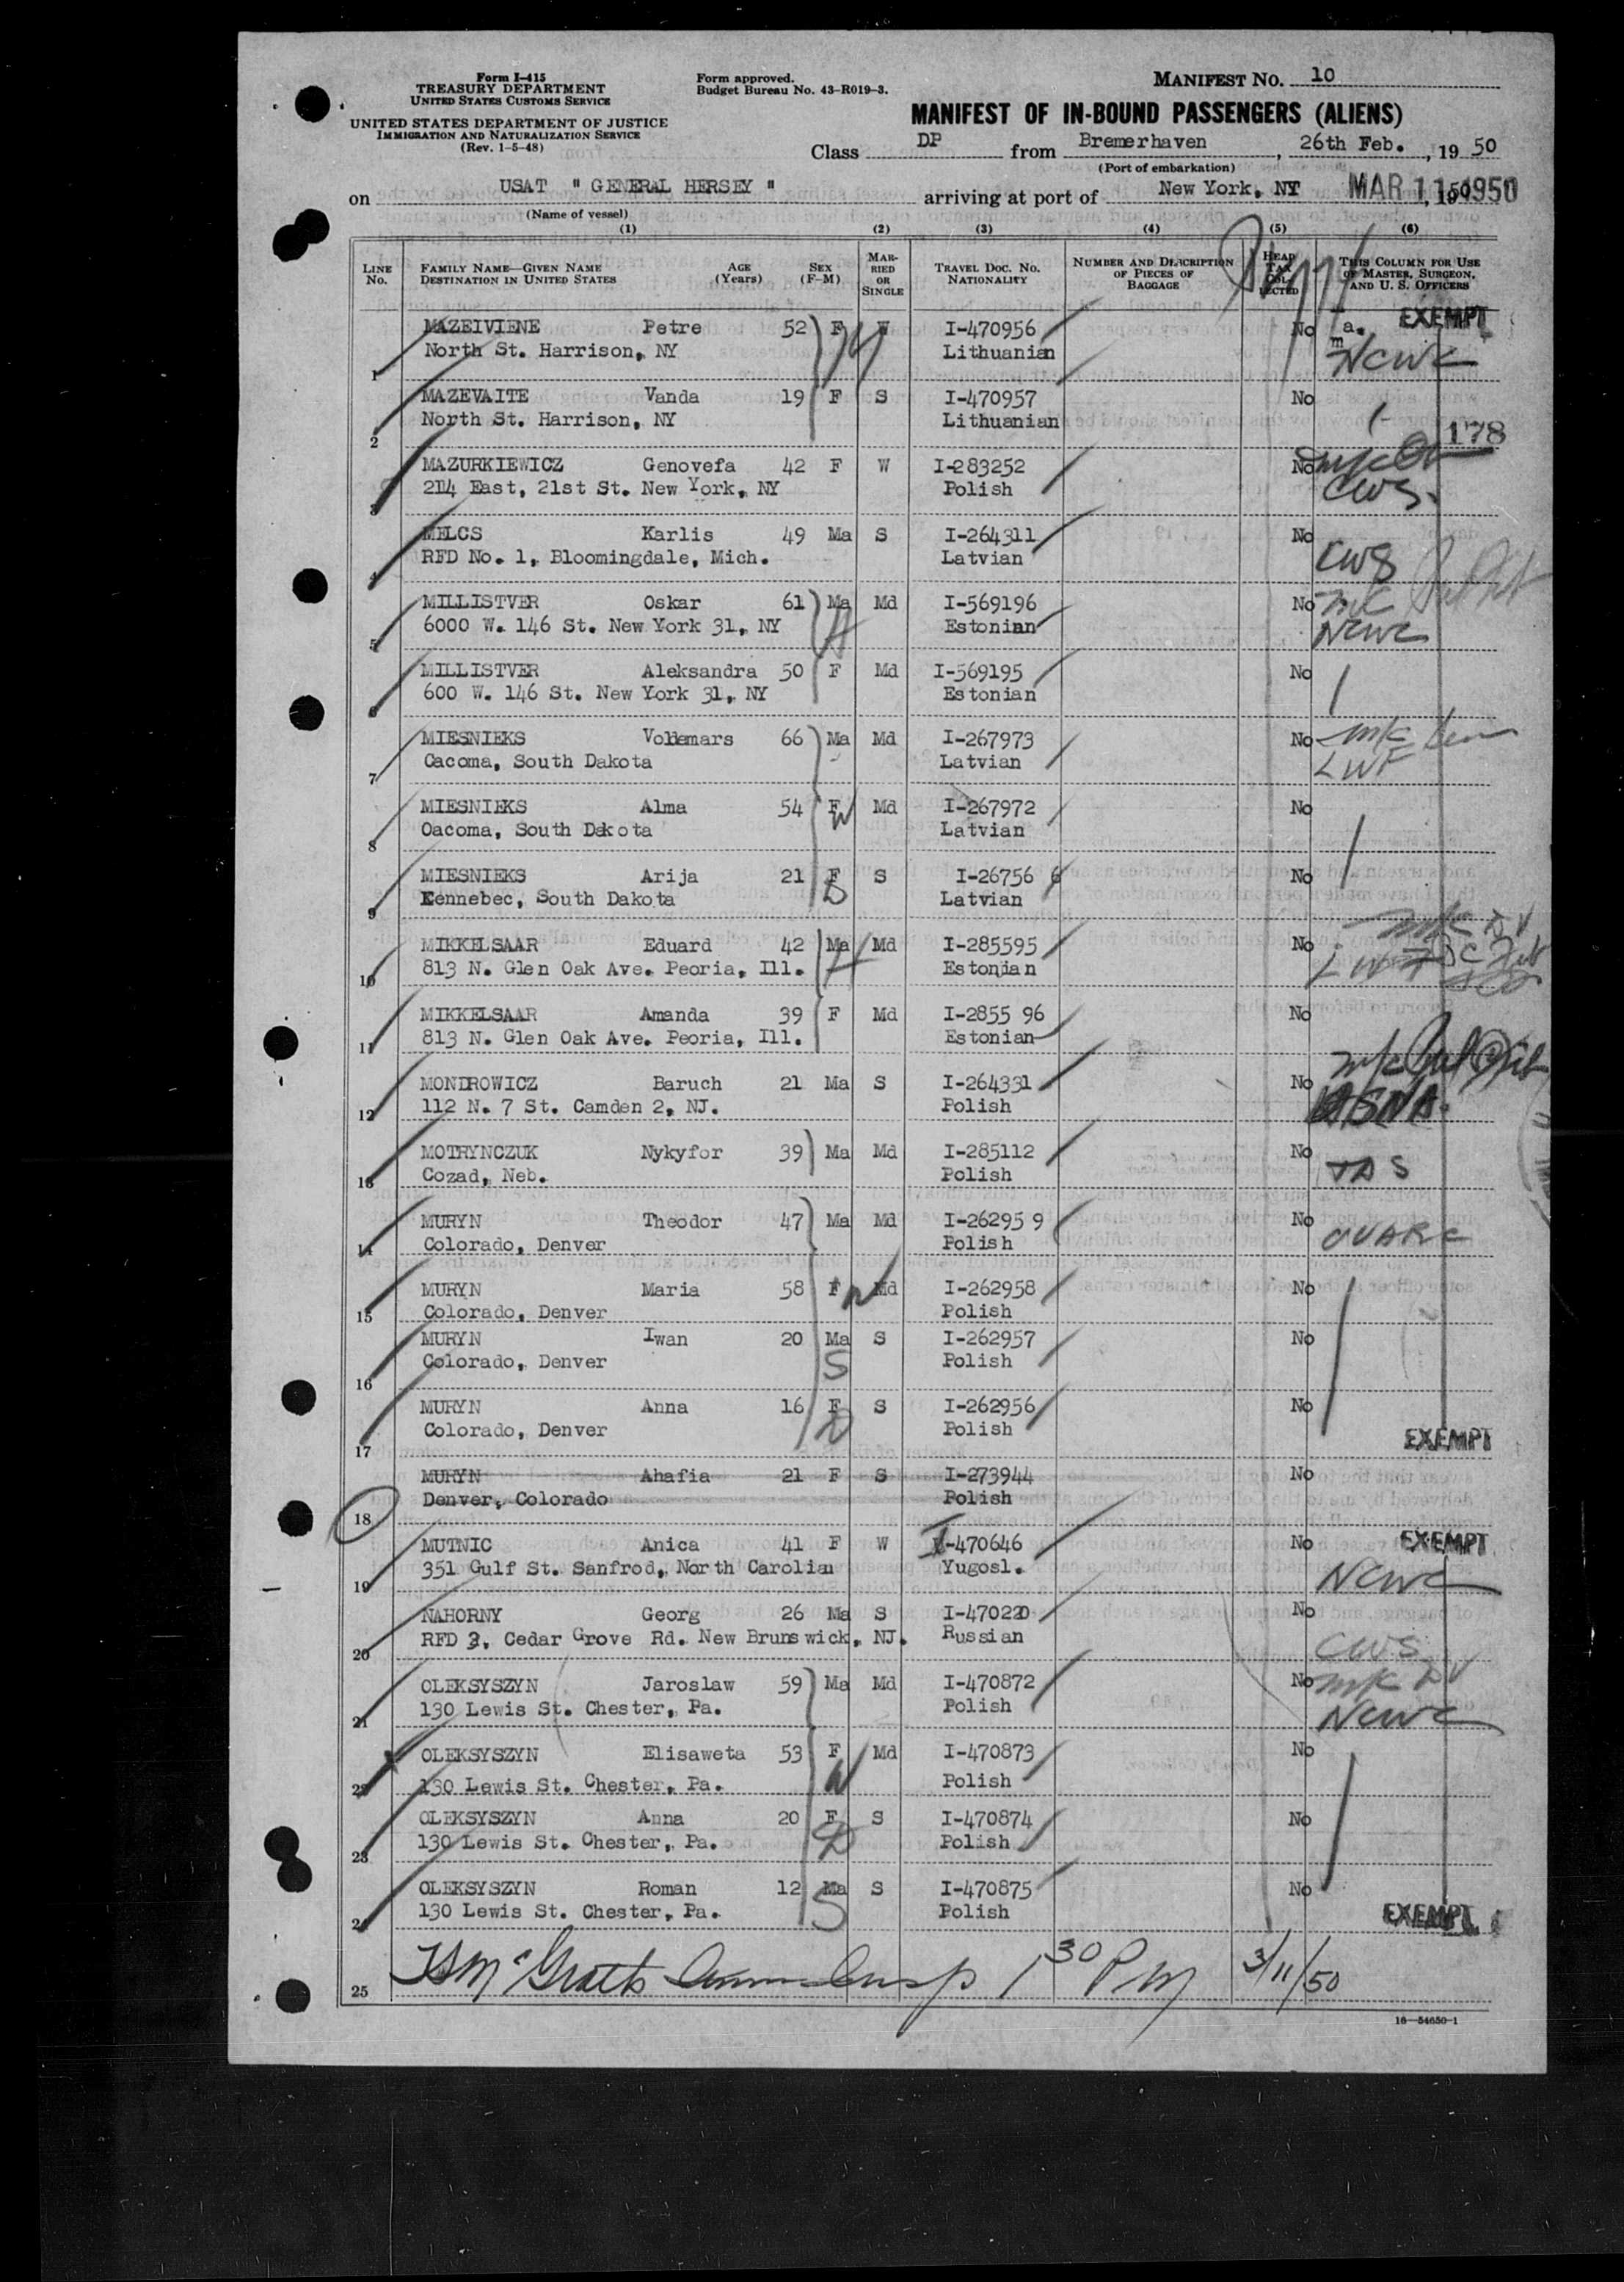 Form I-415
TREASURY DEPARTMENT
UNITED STATES CUSTOMS SERVICE
UNITED STATES DEPARTMENT OF JUSTICE
IMMIGRATION AND NATURALIZATION SERVICE
(Rev. 1-5-48)
Form approved.
Budget Bureau No. 43-R019-3.
MANIFEST NO. 10
MANIFEST OF IN-BOUND PASSENGERS (ALIENS)
Class DP from Bremerhaven, 26th Feb., 19 50
(Port of embarkation)
on USAT " GENERAL HERSEY " arriving at port of New York, NY MAR 11 1950
(Name of vessel)
(1) (2) (3) (4) (5) (6)
LINE NO. FAMILY NAME—GIVEN NAME DESTINATION IN UNITED STATES AGE (Years) SEX (F-M) MARRIED OR SINGLE TRAVEL DOC. NO. NATIONALITY NUMBER AND DESCRIPTION OF PIECES OF BAGGAGE HEAD TAX COLLECTED THIS COLUMN FOR USE OF MASTER, SURGEON, AND U. S. OFFICERS
MAZEIVIENE Petre 52 F W I-470956 No a. EXEMPT
1 North St. Harrison, NY Lithuanian NCWC
MAZEVAITE Vanda 19 F S I-470957 No
2 North St. Harrison, NY Lithuanian 178
MAZURKIEWICZ Genovefa 42 F W I-283252 No
3 214 East, 21st St. New York, NY Polish CWS.
MELCS Karlis 49 Ma S I-264311 No
4 RFD No. 1, Bloomingdale, Mich. Latvian CWS
MILLISTVER Oskar 61 Ma Md I-569196 No
5 6000 W. 146 St. New York 31, NY Estonian NCWC
MILLISTVER Aleksandra 50 F Md I-569195 No
6 600 W. 146 St. New York 31, NY Estonian
MIESNIEKS Voldemars 66 Ma Md I-267973 No
7 Cacoma, South Dakota Latvian LWF
MIESNIEKS Alma 54 F W Md I-267972 No
8 Oacoma, South Dakota Latvian
MIESNIEKS Arija 21 F D S I-26756 6 No
9 Kennebec, South Dakota Latvian
MIKKELSAAR Eduard 42 Ma H Md I-285595 No
10 813 N. Glen Oak Ave. Peoria, Ill. Estonian LWF
MIKKELSAAR Amanda 39 F Md I-2855 96 No
11 813 N. Glen Oak Ave. Peoria, Ill. Estonian
MONDROWICZ Baruch 21 Ma S I-264331 No
12 112 N. 7 St. Camden 2, NJ. Polish USNA.
MOTRYNCZUK Nykyfor 39 Ma Md I-285112 No
13 Cozad, Neb. Polish
MURYN Theodor 47 Ma Md I-26295 9 No
14 Colorado, Denver Polish OUARC
MURYN Maria 58 F W Md I-262958 No
15 Colorado, Denver Polish
MURYN Iwan 20 Ma S S I-262957 No
16 Colorado, Denver Polish
MURYN Anna 16 F D S I-262956 No
17 Colorado, Denver Polish EXEMPT
MURYN Ahafia 21 F S I-273944 No
18 Denver, Colorado Polish
MUTNIC Anica 41 F W I-470646 No EXEMPT
19 351 Gulf St. Sanfrod, North Carolin Yugosl. NCWC
NAHORNY Georg 26 Ma S I-47022 No
20 RFD 3, Cedar Grove Rd. New Brunswick, NJ. Russian CWS
OLEKSYSZYN Jaroslaw 59 Ma Md I-470872 No
21 130 Lewis St. Chester, Pa. Polish NCWC
OLEKSYSZYN Elisaweta 53 F W Md I-470873 No
22 130 Lewis St. Chester, Pa. Polish
OLEKSYSZYN Anna 20 F D S I-470874 No
23 130 Lewis St. Chester, Pa. Polish
OLEKSYSZYN Roman 12 Ma S S I-470875 No
24 130 Lewis St. Chester, Pa. Polish EXEMPT
25 McGrath 1 30 PM 3/11/50
16—54650-1